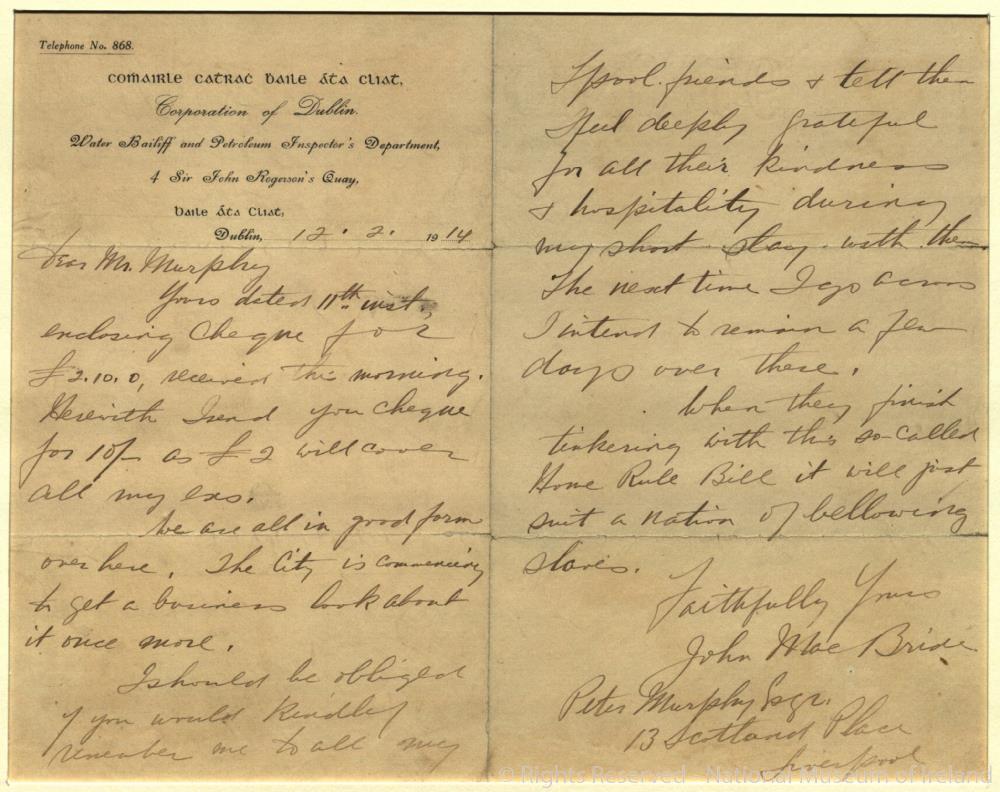 Telephone No. 868.
Comairle Catrac baile áta cliat,
Corporation of Dublin.
Water Bailiff and Petroleum Inspector's Department,
4 Sir John Rogerson's Quay,
baile áta cliat,
Dublin, 12. 2. 1914
Dear Mr. Murphy
Yours dated 11th inst,
enclosing Cheque for
£2.10.0, received this morning.
Herewith I send you Cheque
for 10/- as £2 will cover
all my exs.
We are all in good form
over here. The City is commencing
to get a business look about
it once more.
I should be obliged
if you would kindly
remember me to all my
L'pool. friends & tell them
I feel deeply grateful
for all their kindness
& hospitality during
my short stay with them.
The next time I go across
I intend to remain a few
days over there.
When they finish
tinkering with this so-called
Home Rule Bill it will just
suit a nation of bellowing
slaves.
Faithfully Yours
John MacBride
Peter Murphy Esqr.
13 Scotland Place
Liverpool
© Rights Reserved - National Museum of Ireland